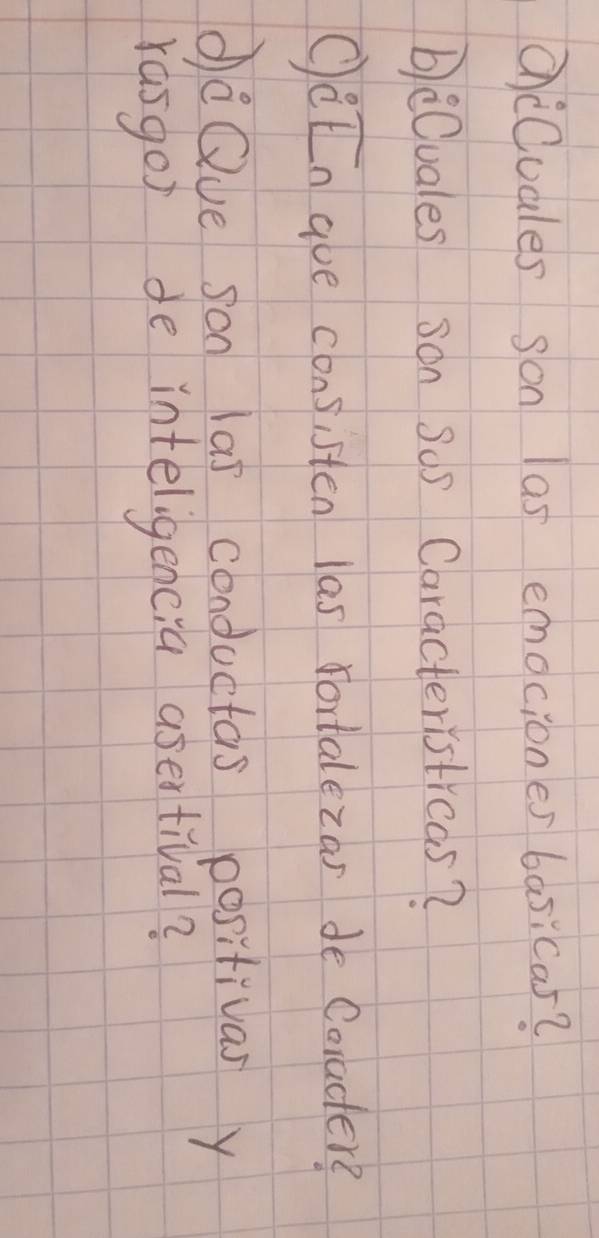 a)¿Cuales son las emociones basicas?
b)¿Cuales son sus Caracteristicas?
c)¿En que consisten las fortalezas de Caracter?
d)¿Que son las conductas positivas y
rasgos de inteligencia asertival?